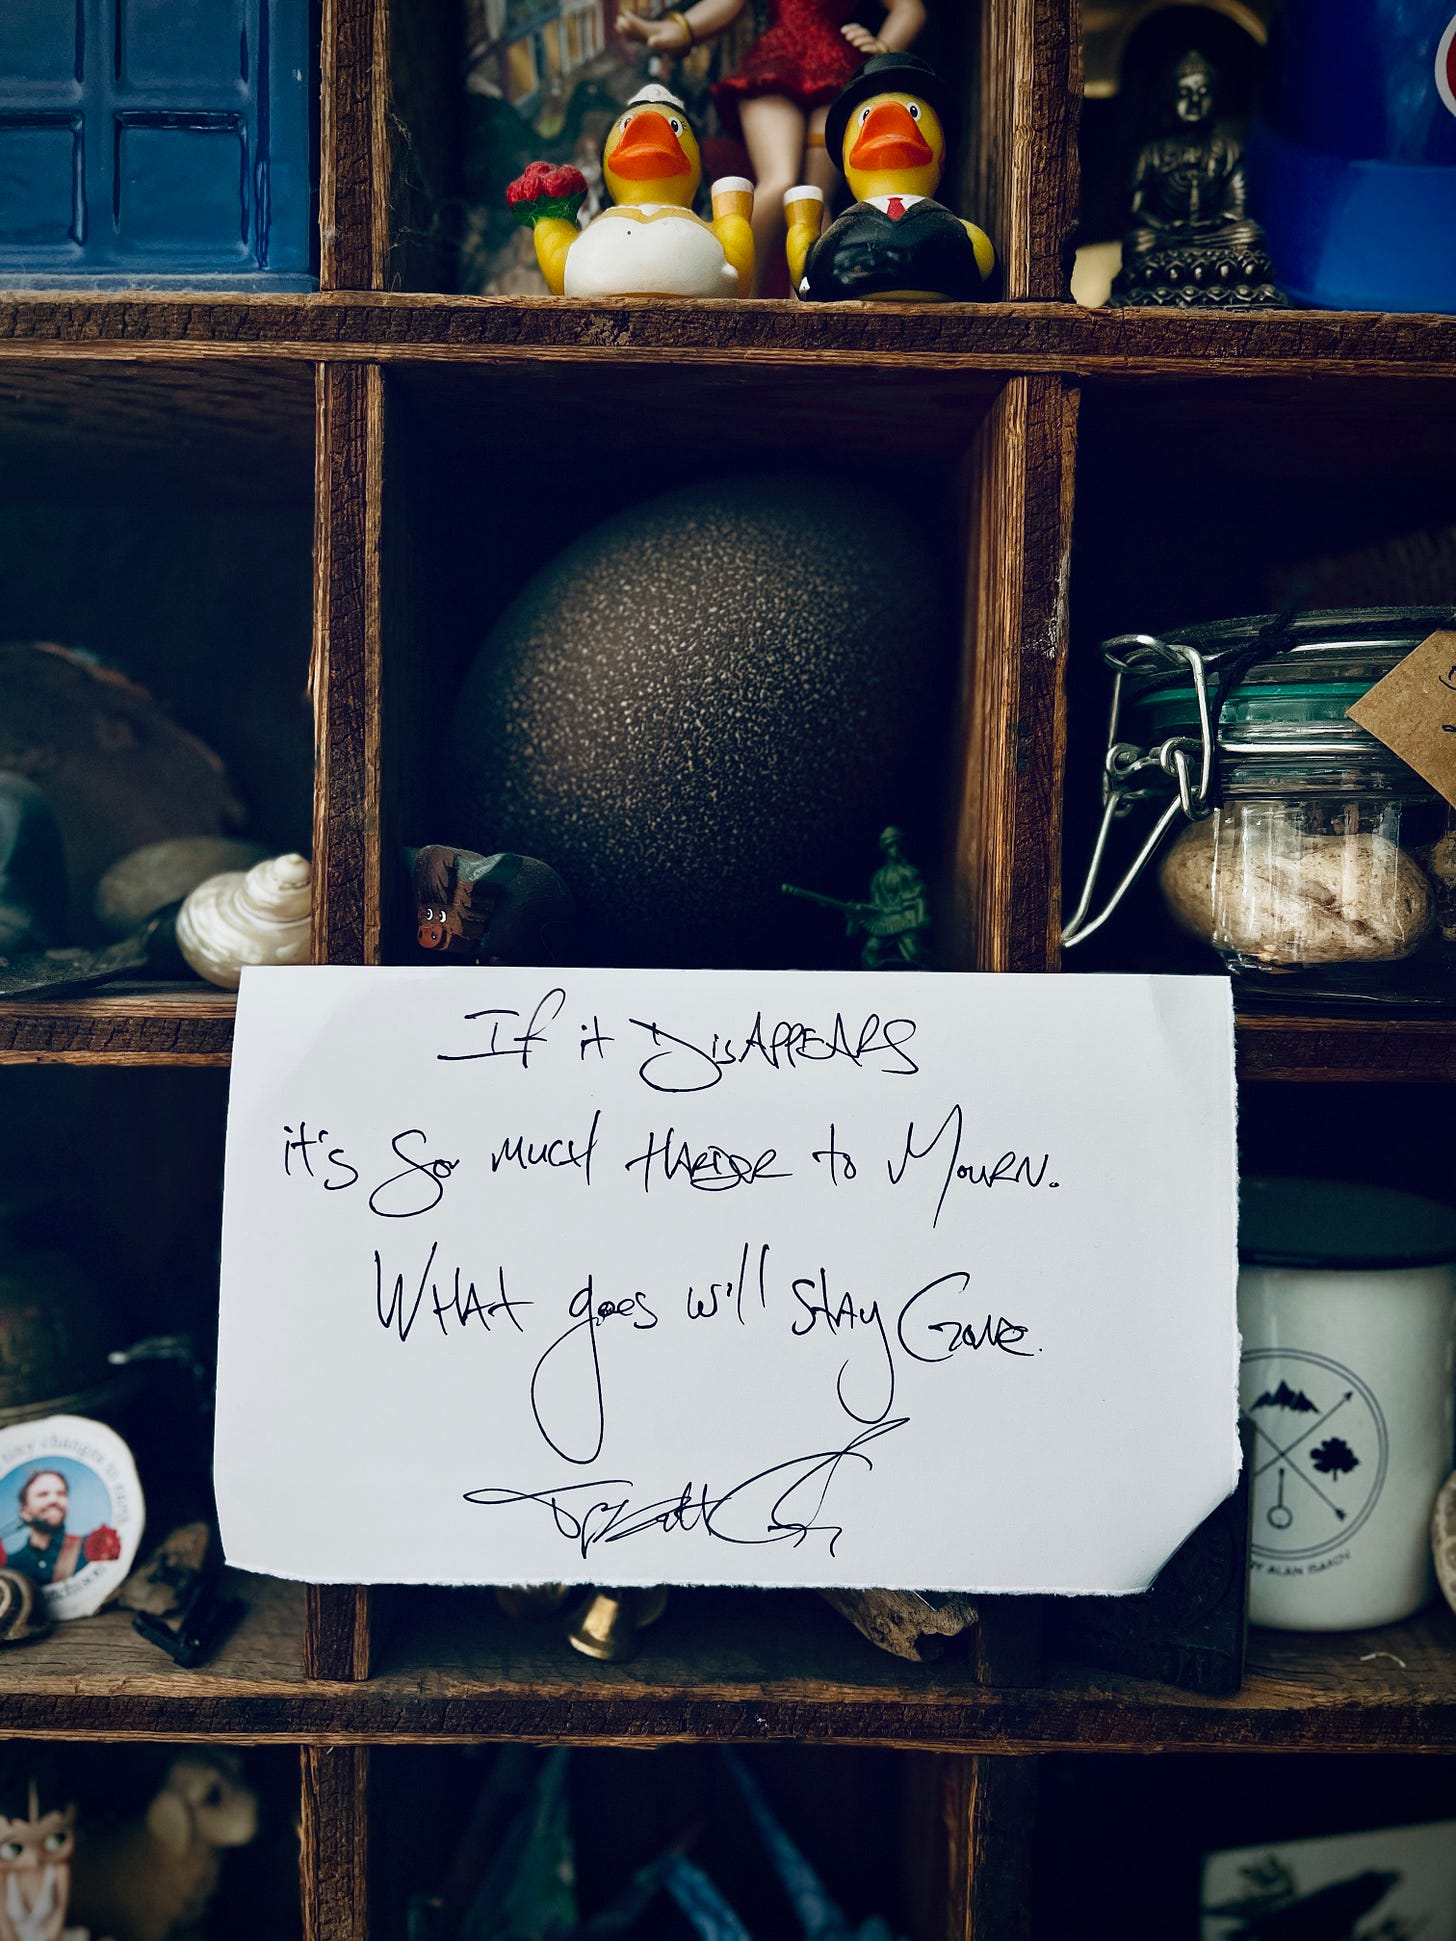 If it DisAPPEARS
it's So MUCH HARDER to MOURN.
WHAt goes will stAy GoNe.
tiny changes to
ALAN ISAKOV